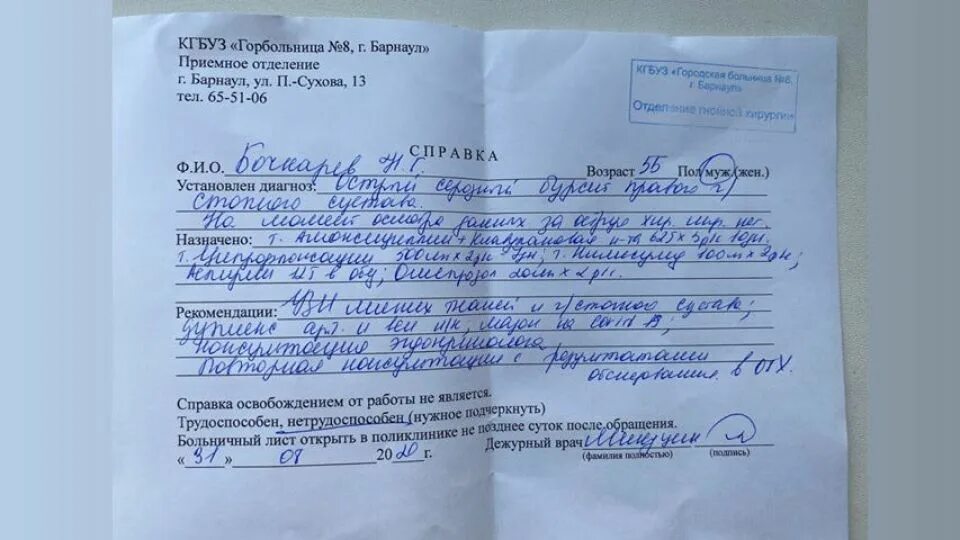 КГБУЗ «Горбольница №8, г. Барнаул»
Приемное отделение
г. Барнаул, ул. П.-Сухова, 13
тел. 65-51-06
КГБУЗ «Городская больница №8,
г. Барнаул»
Отделение гнойной хирургии
СПРАВКА
Ф.И.О. Бочкарев Н.Г. Возраст 55 Пол муж.(жен.)
Установлен диагноз: Острый серозный бурсит правого г/
стопного сустава.
На момент осмотра данных за острую хир. нет.
Назначено: т. Амоксициллин + Клавулановая к-та 625 х 3р/с
т. Ципрофлоксацин 500мг х 2р/с; т. Нимесулид 100мг х 2р/с;
Аспирин 1/2т в обед; Омепразол 20мг х 2р/с.
Рекомендации: УЗИ мягких тканей и г/стопного сустава;
дуплекс арт. и вен н/к, мазок на covid 19;
консультация эндокринолога
Повторная консультация с результатами
обследования. в ОГХ.
Справка освобождением от работы не является.
Трудоспособен, нетрудоспособен (нужное подчеркнуть)
Больничный лист открыть в поликлинике не позднее суток после обращения.
«31» 08 2020 г. Дежурный врач
(фамилия полностью) (подпись)